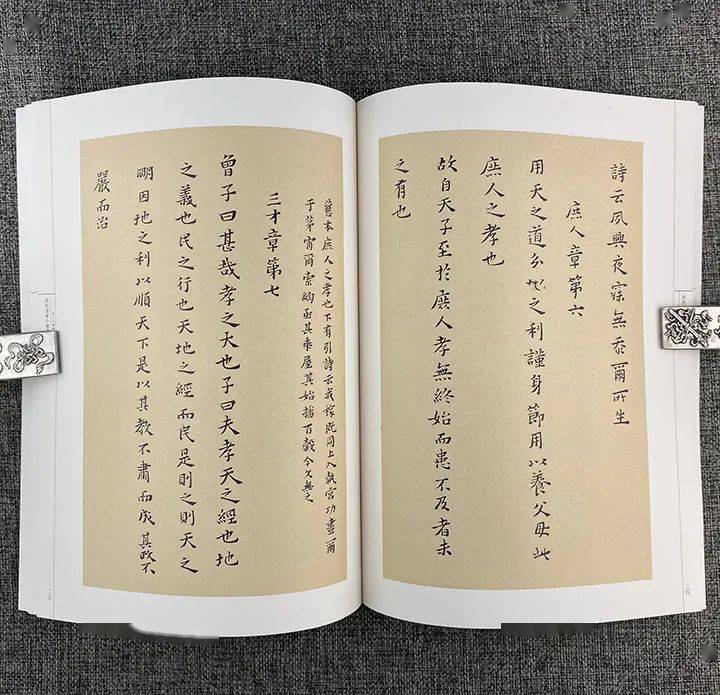 詩云夙興夜寐無忝爾所生
庶人章第六
用天之道分地之利謹身節用以養父母此
庶人之孝也
故自天子至於庶人孝無終始而患不及者未
之有也
舊本庶人之孝也下有引詩云我稼既同上入執宮功晝爾
于茅宵爾索綯亟其乘屋其始播百穀今文無之
三才章第七
曾子曰甚哉孝之大也子曰夫孝天之經也地
之義也民之行也天地之經而民是則之則天之
明因地之利以順天下是以其教不肅而成其政不
嚴而治